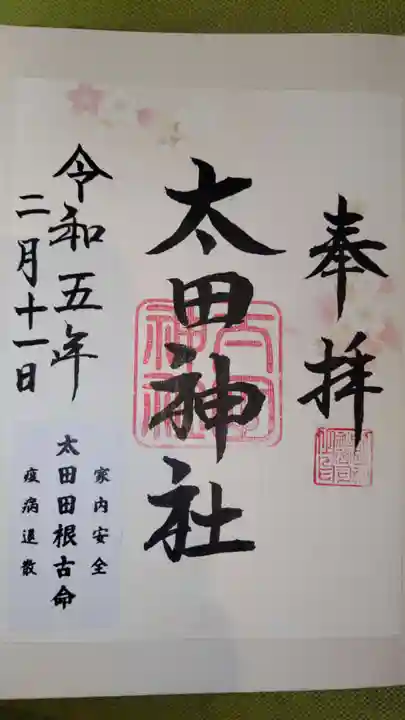 奉拝
太田神社
令和五年
二月十一日
家内安全
太田田根古命
疫病退散
太田神社